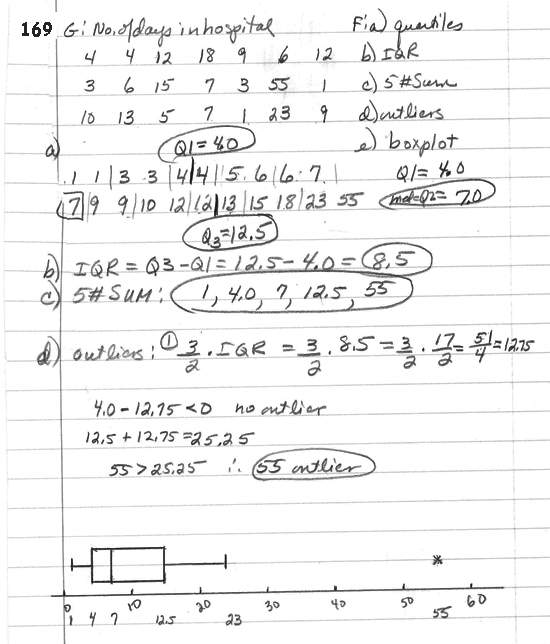 169 G: No. of days in hospital F: a) quartiles
4 4 12 18 9 6 12 b) IQR
3 6 15 7 3 55 1 c) 5#Sum
10 13 5 7 1 23 9 d) outliers
a) Q1=4.0 e) boxplot
1 1 | 3 3 | 4 | 4 | 5 6 | 6 7 | Q1=4.0
7 | 9 9 | 10 12 | 12 | 13 | 15 18 | 23 55 med=Q2=7.0
Q3=12.5
b) IQR = Q3-Q1 = 12.5-4.0 = 8.5
c) 5#SUM: 1, 4.0, 7, 12.5, 55
d) outliers: ① 3/2 · IQR = 3/2 · 8.5 = 3/2 · 17/2 = 51/4 = 12.75
4.0-12.75<0 no outlier
12.5+12.75=25.25
55>25.25 ∴ 55 outlier
*
0 10 20 30 40 50 60
1 4 7 12.5 23 55